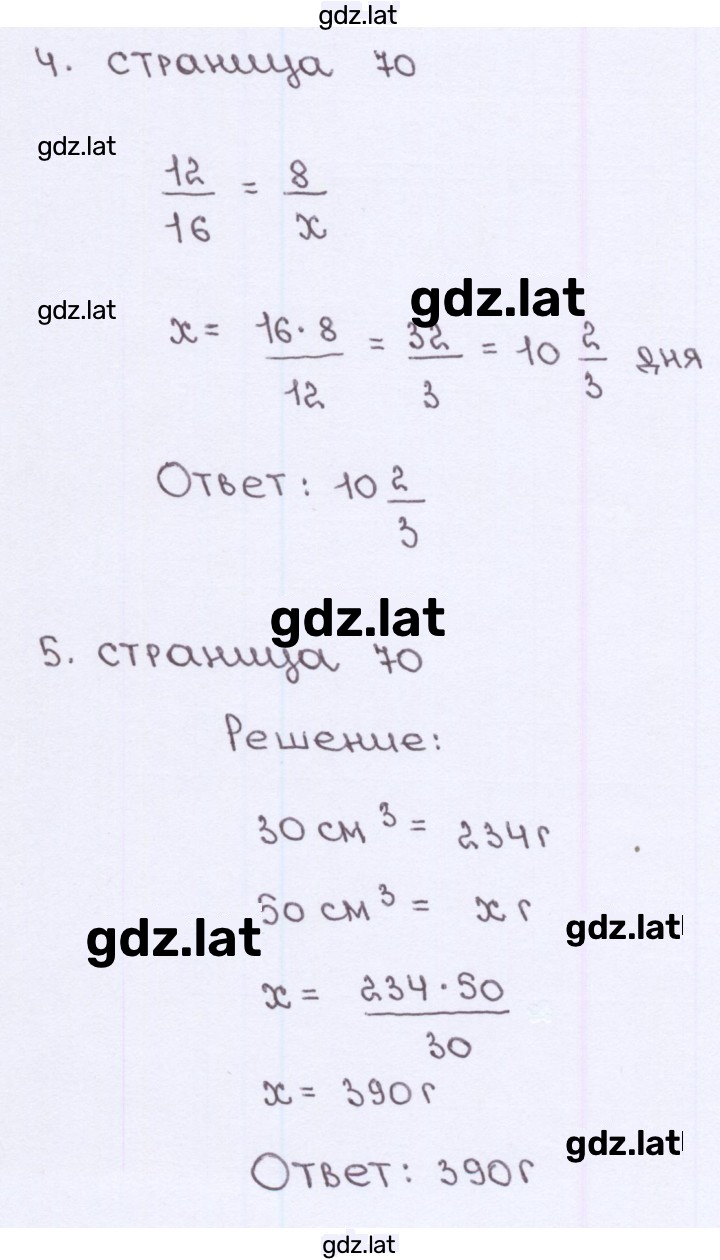 gdz.lat
4. страница 70
gdz.lat
12/16 = 8/x
gdz.lat
gdz.lat
x = 16·8/12 = 32/3 = 10 2/3 дня
Ответ: 10 2/3
gdz.lat
5. страница 70
Решение:
30 см³ = 234г
50 см³ = x г
gdz.lat
gdz.lat
x = 234·50/30
x = 390г
gdz.lat
Ответ: 390г
gdz.lat